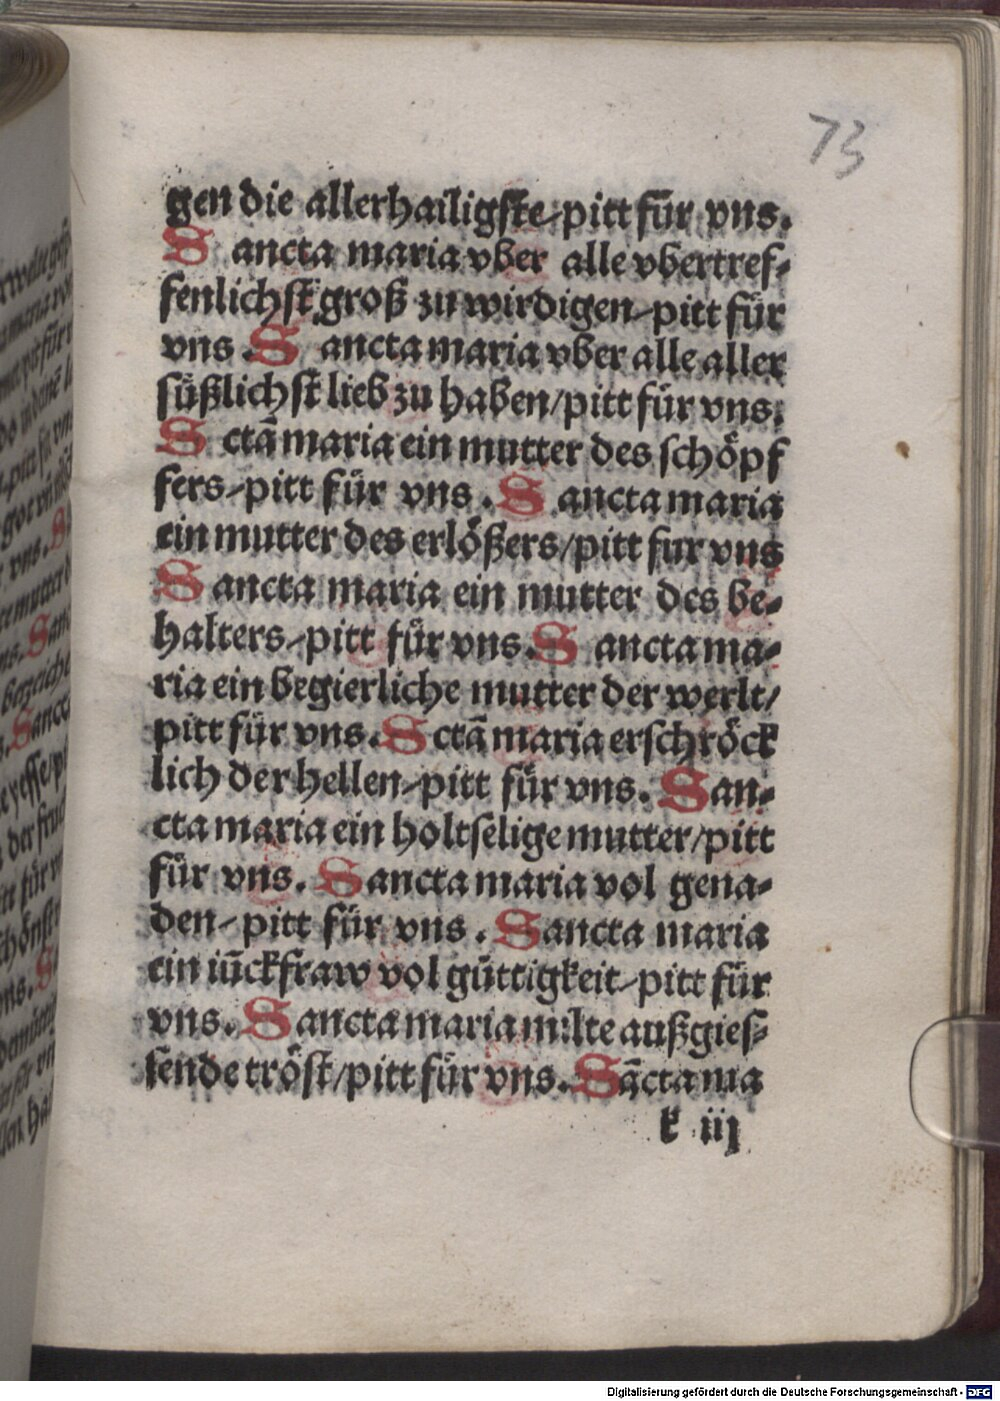 73
gen die allerhailigste/pitt für vns.
Sancta maria vber alle vbertref-
fenlichst groß zu wirdigen/pitt für
vns. Sancta maria vber alle aller
süßlichst lieb zu haben/pitt für vns.
Sctā maria ein mutter des schöpf
fers/pitt für vns. Sancta maria
ein mutter des erlößers/pitt fur vns
Sancta maria ein mutter des be-
halters/pitt für vns. Sancta ma-
ria ein begierliche mutter der werlt/
pitt für vns. Sctā maria erschröck
lich der hellen/pitt für vns. San-
cta maria ein holtselige mutter/pitt
für vns. Sancta maria vol gena-
den/pitt für vns. Sancta maria
ein iūckfraw vol güttigkeit/pitt für
vns. Sancta maria milte außgies-
sende tröst/pitt für vns. Sācta ma
k iij
Digitalisierung gefördert durch die Deutsche Forschungsgemeinschaft - DFG